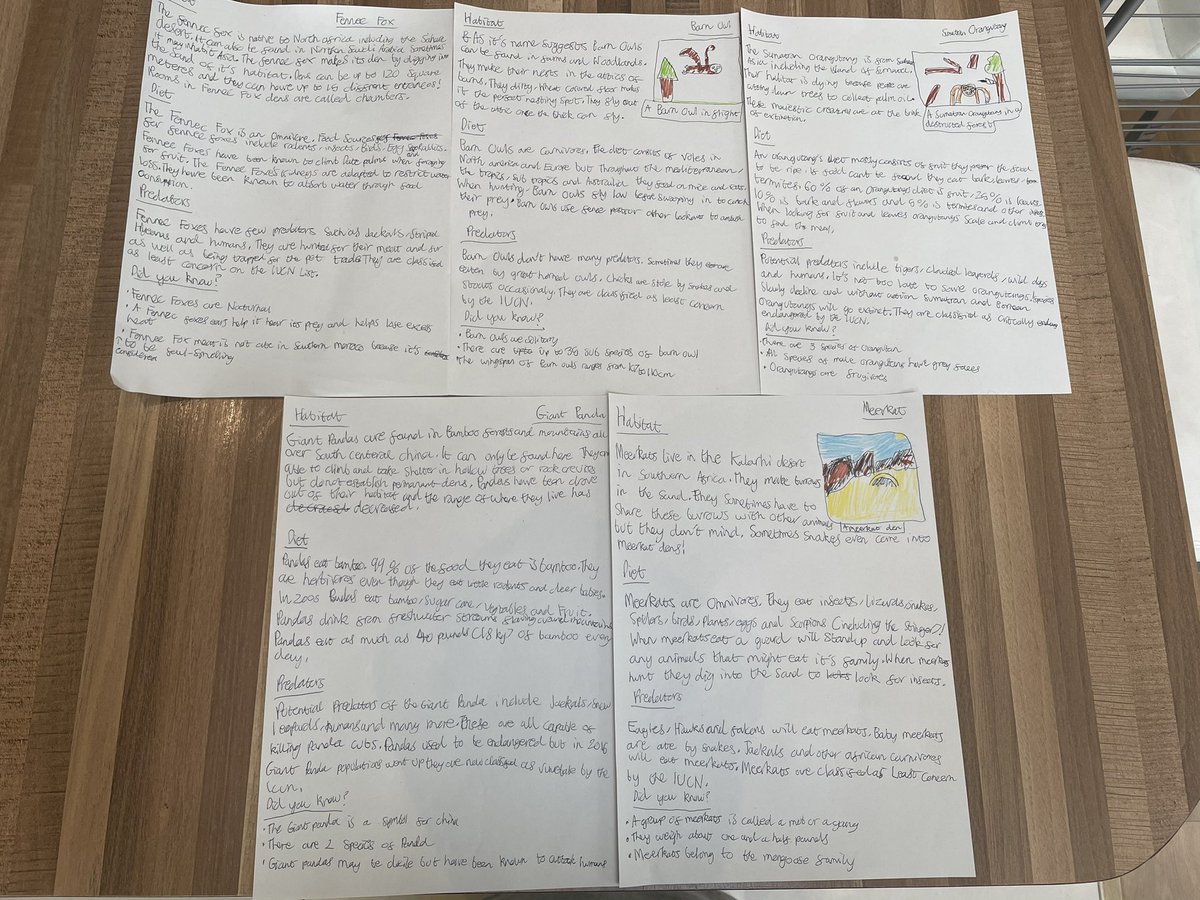 Fennec Fox
The Fennec fox is native to North africa including the Sahara
desert. It can also be found in Northern Saudi Arabia Sometimes
it may inhabit Asia. The fennec fox makes its den by digging in
the sand of it's habitat. Dens can be up to 120 Square
metres and they can have up to 15 different entrances!
Rooms in Fennec Fox dens are called chambers.
Diet
The Fennec Fox is an omnivore. Food Sources
for fennec foxes include rodents, insects, Birds, Eggs
Fennec Foxes have been known to climb Date palms when foraging
for fruit. The Fennec Foxes kidneys are adapted to restrict water
loss. They have been known to absorb water through food
consumption.
Predators
Fennec Foxes have few predators Such as Jackals, striped
Hyenas and humans. They are hunted for their meat and fur
as well as being trapped for the pet trade. They are classified
as least concern on the IUCN List.
Did you know?
• Fennec Foxes are Nocturnal
• A Fennec foxes ears help it hear its prey and helps lose excess
heat
• Fennec Fox meat is not ate in Southern morocco because it's
considered to be foul-Smelling
Habitat
Barn Owl
As it's name suggests Barn Owls
can be found in farms and Woodlands.
They make their nests in the attics of
barns. They dirty, wheat covered floor makes
it the perfect nesting spot. They fly out
of the attic once the chick can fly.
A Barn Owl in flight
Diet
Barn Owls are Carnivores. The diet consists of Voles in
North america and Europe but Throughout the mediterranean,
the tropics, sub tropics and Australia they feed on mice and rats.
When hunting. Barn Owls fly low before swooping in to catch
their prey. Barn Owls use fence posts or other lookouts to ambush
prey.
Predators
Barn Owls don't have many predators. Sometimes they are
eaten by great horned owls. Chicks are stole by snakes and
stoats occasionally. They are classified as least concern
by the IUCN.
Did you know?
• Barn Owls are solitary
• There are up to 36 sub species of barn owl
• The wingspan of Barn owls ranges from to 110cm
Habitat
Sumatran Orangutang
The Sumatran Orangutang is from
Asia including the island of Sumatra.
Their habitat is dying because people are
cutting down trees to collect palm oil.
These majestic creatures are at the brink
of extinction.
A Sumatran Orangutang in a
destructed forest
Diet
An orangutang's diet mostly consists of fruit they the food
to be ripe. If food cant be found they eat bark, leaves
termites. 60% of an Orangutang diet is fruit, 25% is leaves
10% is bark and flowers and 5% is termites and other
When looking for fruit and leaves orangutang's Scale and climb
to find the meal.
Predators
Potential predators include tigers, clouded leopards, wild dogs
and humans. It's not too late to save orangutangs,
Slowly decline and without action Sumatran and Bornean
Orangutangs will go extinct. They are classified as critically
endangered by the IUCN.
Did you know?
• There are 3 species of Orangutan
• All species of male orangutans have grey faces
• Orangutangs are frugivores
Habitat
Giant Panda
Giant Pandas are found in Bamboo forests and mountains all
over South centeral china. It can only be found here. They are
able to climb and take shelter in hollow trees or rock crevices
but do not establish permanant dens. Pandas have been drove
out of their habitat and the range of where they live has
decreased.
Diet
Pandas eat bamboo. 99% of the food they eat is bamboo. They
are herbivores even though they eat little rodents and deer babies.
In zoos Pandas eat bamboo, sugar cane, vegtables and Fruit.
Pandas drink from freshwater streams flowing around the mountains
Pandas eat as much as 40 pounds (18 kg) of bamboo every
day.
Predators
Potential Predators of the Giant Panda include Jackals, Snow
leopards, humans and many more. These are all capable of
killing Panda cubs. Pandas used to be endangered but in 2016
Giant Panda populations went up they are now classified as by the
Iucn.
Did you know?
• The Giant panda is a symbol for china
• There are 2 Species of Panda
• Giant pandas may be docile but have been known to attack humans
Meerkat
Habitat
Meerkats live in the Kalarhi desert
in Southern Africa. They make burrows
in the Sand. They sometimes have to
Share these burrows with other animals
but they don't mind. Sometimes Snakes even come into
meerkat dens!
A meerkat den
Diet
Meerkats are Omnivores. They eat insects, lizards, snakes,
Spiders, birds, plants, eggs and Scorpions (including the stinger)!
When meerkats eat a guard will Stand up and look for
any animals that might eat it's family. When meerkats
hunt they dig into the Sand to look for insects.
Predators
Eagles, Hawks and falcons will eat meerkats. Baby meerkats
are ate by snakes. Jackals and other african carnivores
will eat meerkats. Meerkats are classified as Least Concern
by the IUCN.
Did you know?
• A group of meerkats is called a mob or a gang
• They weigh about one and a half pounds
• Meerkats belong to the mongoose family